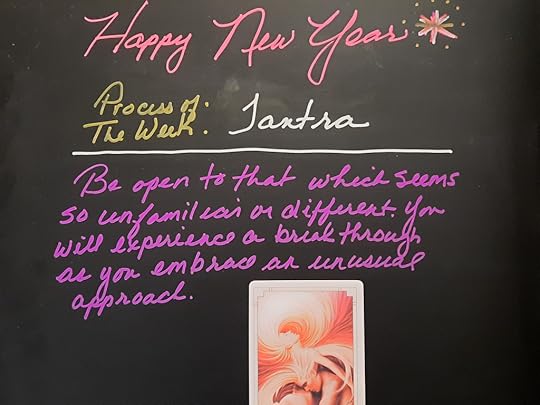 Happy New Year
Process of
The Week: Tantra
Be open to that which seems
so unfamiliar or different. You
will experience a breakthrough
as you embrace an unusual
approach.